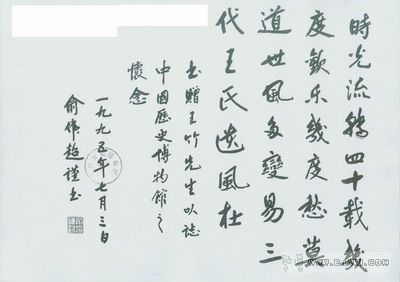 時光流轉四十載幾
度歡乐幾度愁莫
道世風多變易三
代王氏遗風在
出贈王竹先生以誌
中國歷史博物館之
懷念
一九九五年七月三日
俞偉超謹书